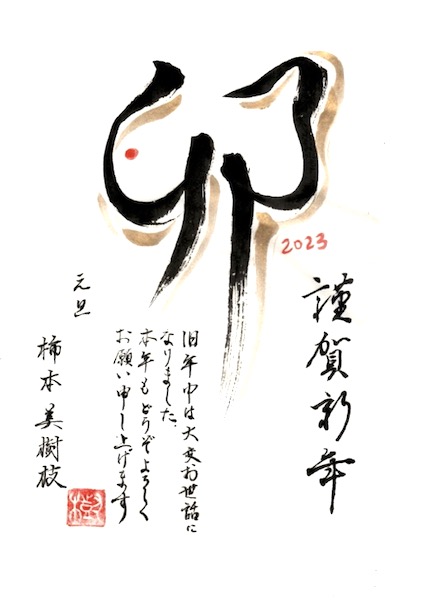 卯
2023
謹賀新年
旧年中は大変お世話に
なりました。
本年もどうぞよろしく
お願い申し上げます
元旦
柿本美樹枝
樹